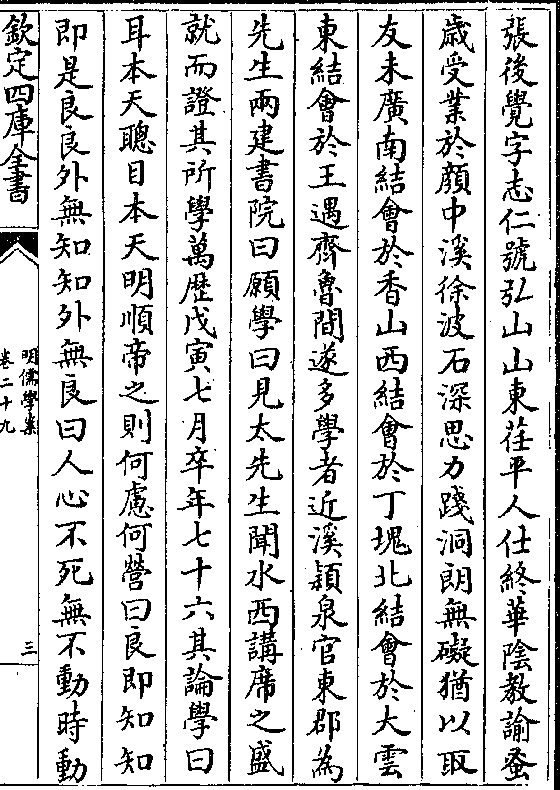 張後覺字志仁號𢎞山山東茌平人仕終華陰教諭蚤
歳受業於顔中溪徐波石深思力踐洞朗無礙猶以取
友未廣南結會於香山西結會於丁塊北結會於大雲
東結會於王遇齊魯間遂多學者近溪潁泉官東郡為
先生兩建書院曰願學曰見太先生聞水西講席之盛
就而證其所學萬歴戊寅七月卒年七十六其論學曰
耳本天聰目本天明順帝之則何慮何營曰良即知知
即是良良外無知知外無良曰人心不死無不動時動
欽定四庫全書
明儒學案
卷二十九
三